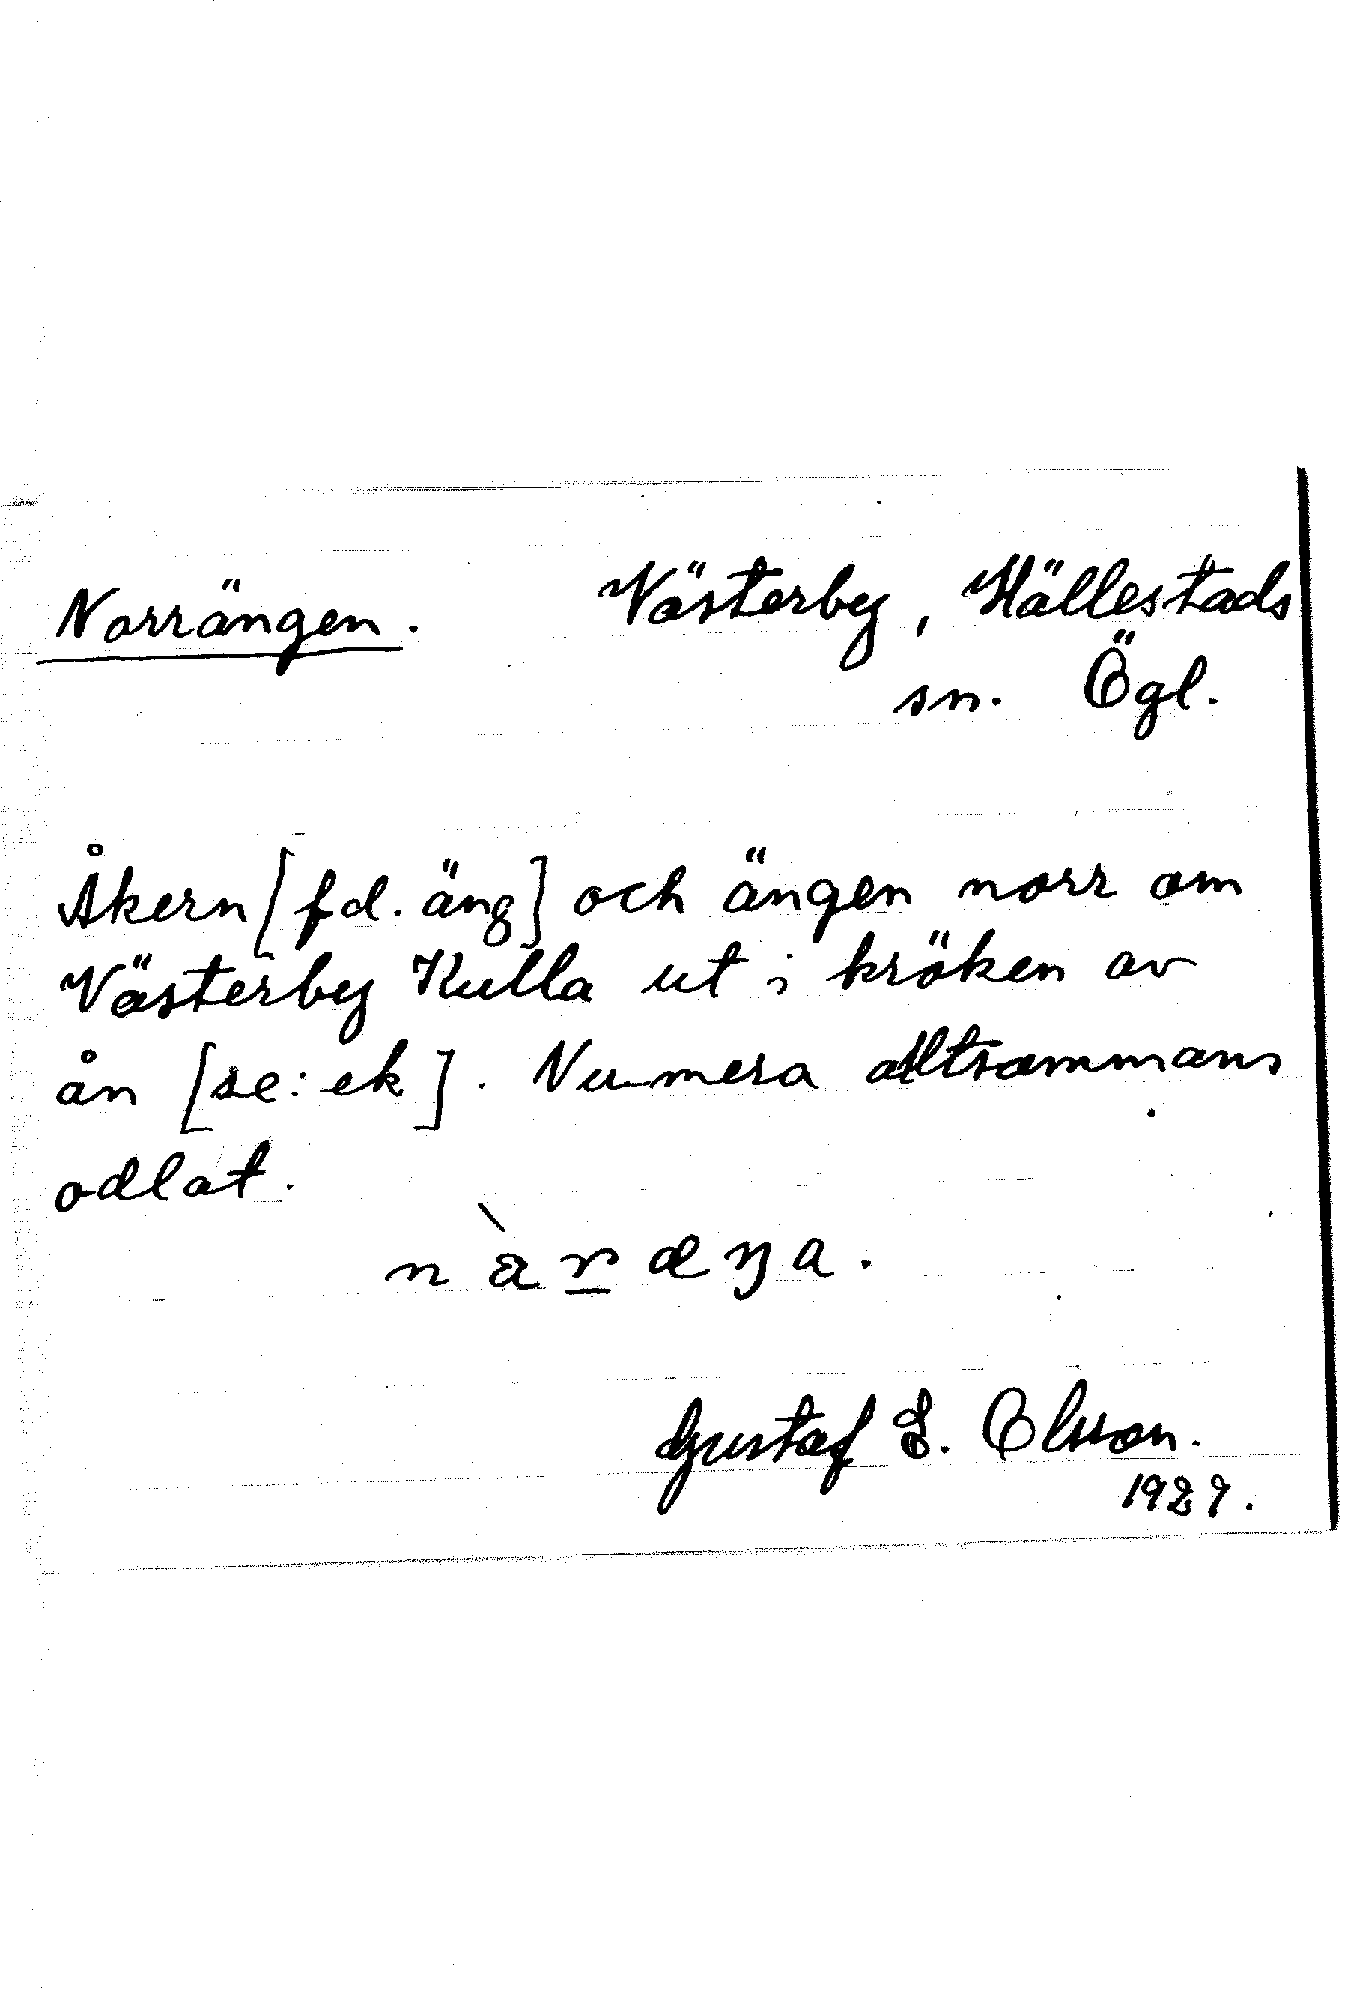 Norrängen. Västerby, Hällestads
sn. Ögl.
Åkern [fd. äng] och ängen norr om
Västerby Kulla ut i kröken av
ån [se: ek]. Numera alltsammans
odlat.
Gustaf E. Olsson.
1929.